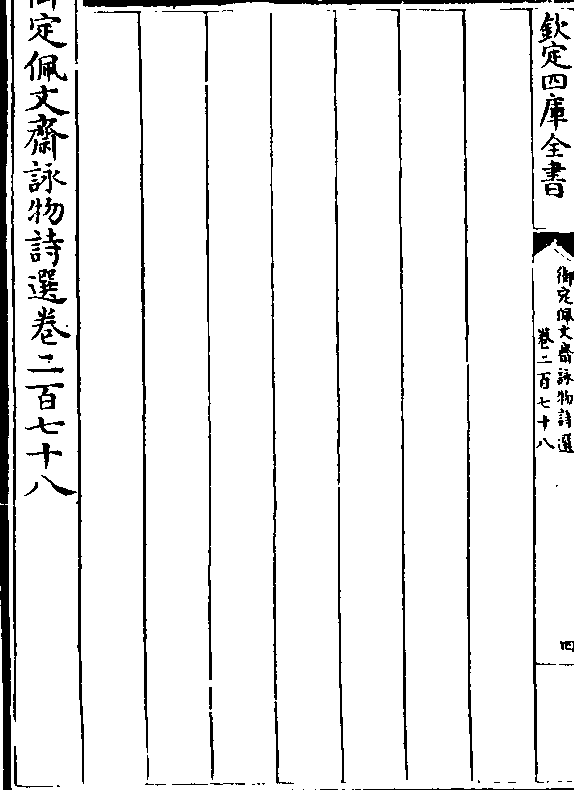 欽定四庫全書
御定佩文齋詠物詩選
卷二百七十八
四
御定佩文齋詠物詩選卷二百七十八